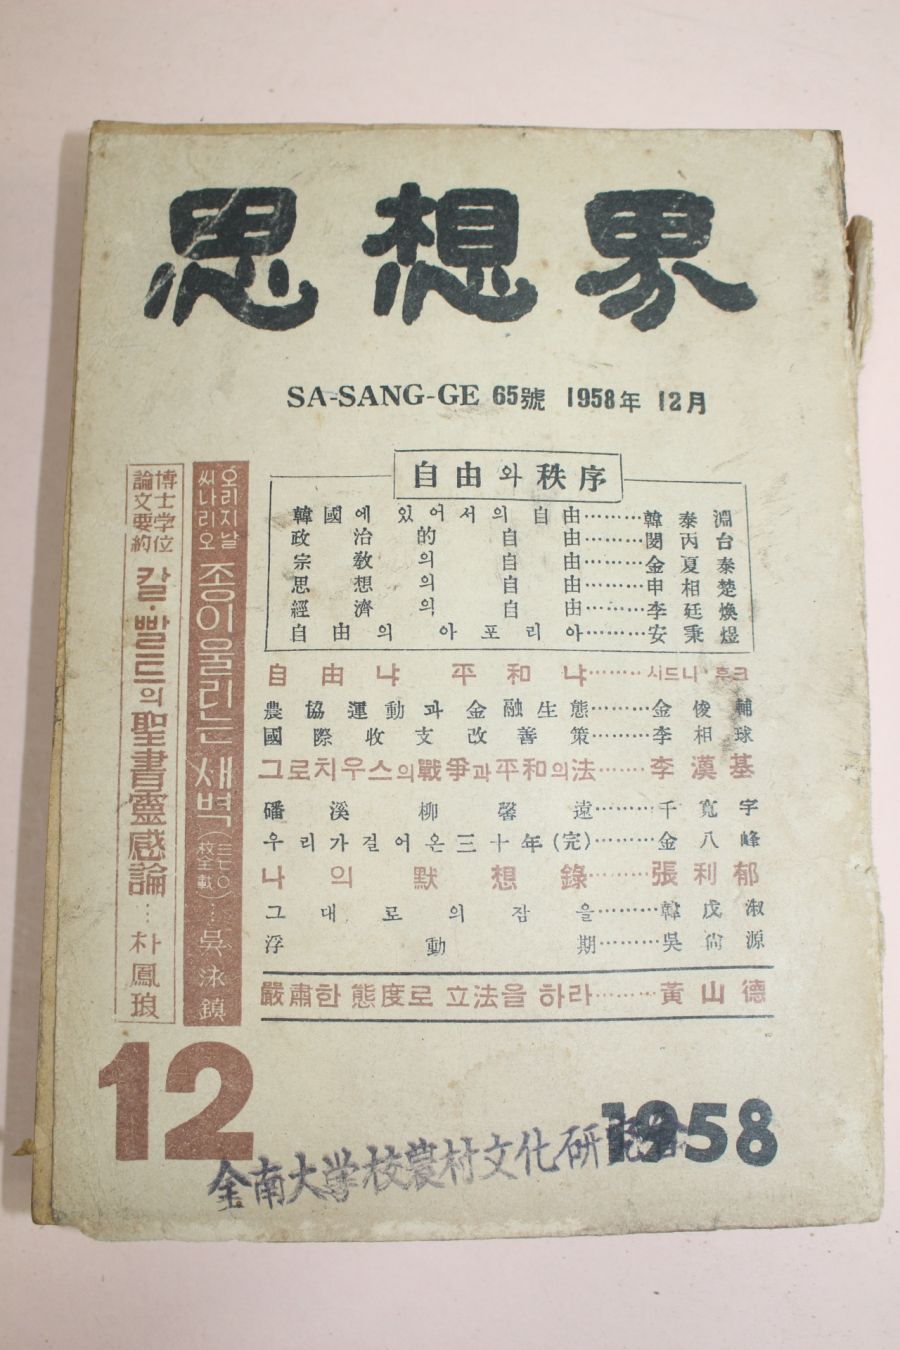 思想界
SA-SANG-GE 65號 1958年 12月
自由와 秩序
韓國에 있어서의 自由………韓泰淵
政治的自由………閔丙台
宗教의自由………金夏泰
思想의自由………申相楚
經濟의自由………李廷煥
自由의 아포리아………安秉煜
自由냐 平和냐………시드니·후크
農協運動과 金融生態………金俊輔
國際收支改善策………李相球
그로치우스의戰爭과平和의法……李漢基
磻溪柳馨遠………千寬宇
우리가걸어온三十年(完)………金八峰
나의默想錄………張利郁
그대로의잠을………韓戊淑
浮動期………吳尙源
嚴肅한 態度로 立法을 하라………黃山德
오리지날
씨나리오
종이울리는새벽(三七〇枚全載)…吳泳鎭
博士学位
論文要約
칼·빨트의聖書靈感論…朴鳳琅
12
1958
全南大学校農村文化研究会